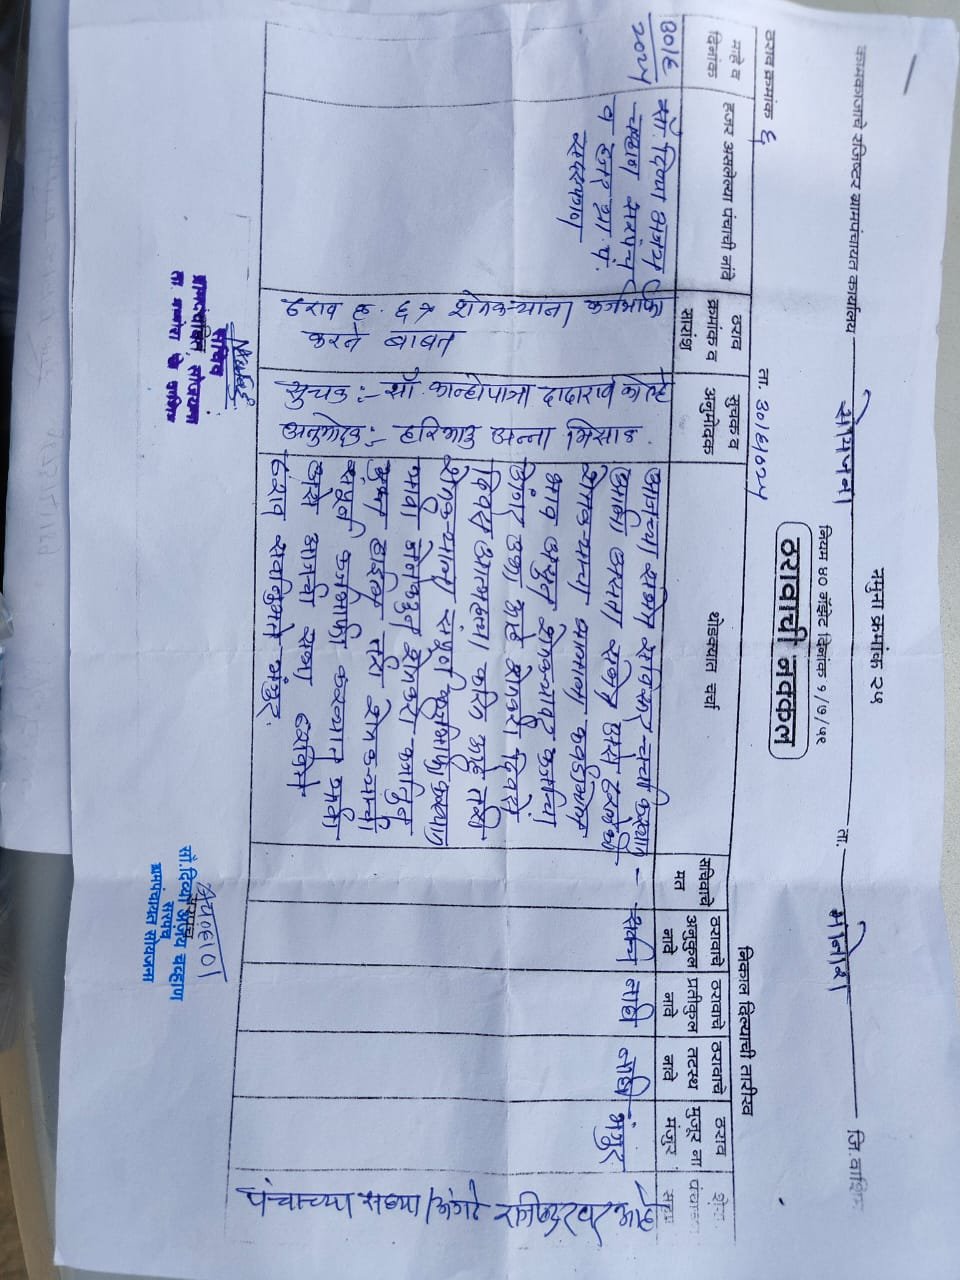 नमुना क्रमांक २५
नियम ४० गॅझेट दिनांक ९/७/५९
कामकाजाचे रजिष्टर ग्रामपंचायत कार्यालय सोयजना ता. मानोरा जि. वाशिम
ठरावाची नक्कल
ठराव क्रमांक ६
ता. ३०/६/२०२५
निकाल दिल्याची तारीख
माहे व दिनांक
हजर असलेल्या पंचाची नांवे
ठराव क्रमांक व सारांश
सुचक व अनुमोदक
थोडक्यात चर्चा
सचिवाचे मत
ठरावाचे अनुकुल नावे
ठरावाचे प्रतीकुल नावे
ठरावाचे तटस्थ नावे
ठराव मुजूर ना मंजुर
३०/६/२०२५
सौ. दिव्या अजय
चव्हाण सरपंच
व हजर ग्रा. पं.
सदस्यगण
ठराव क्र. ६ त्र शेतकऱ्यांना कर्जमाफी
करणे बाबत
सुचक :- सौ. कान्होपात्रा दादाराव कोल्हे
अनुमोदक :- हरिभाऊ अन्ना मिसाळ
आजच्या सभेत सविस्तर चर्चा करण्यात
आली असता सभेत असे ठरले की
शेतकऱ्यांच्या
भाव असून शेतकऱ्यावर कर्जाचा
डोंगर उभा आहे शेतकरी दिवसे
दिवस आत्महत्या करित आहे तरी
शेतकऱ्यांना संपुर्ण कर्जमाफी करण्यात
यावी जेणेकरून शेतकरी कर्जातुन
मुक्त होईल तरी शेतकऱ्यांची
संपुर्ण कर्जमाफी करण्यात यावी
असे आमची सभा ठरविते
ठराव सर्वानुमते मंजुर
-
सर्व
नाही
नाही
मंजुर
पंचाच्या सह्या/अंगठे रजिष्टरवर आहे
सचिव
ग्रामपंचायत सोयजना
ता. मानोरा जि. वाशिम
सौ. दिव्या अजय चव्हाण
सरपंच
ग्रामपंचायत सोयजना